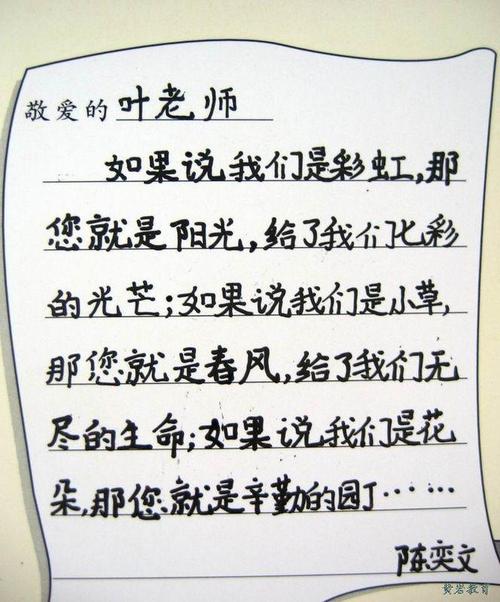 敬爱的 叶老师
如果说我们是彩虹,那
您就是阳光,给了我们七彩
的光芒;如果说我们是小草,
那您就是春风,给了我们无
尽的生命;如果说我们是花
朵,那您就是辛勤的园丁……
陈奕文
黄岩教育